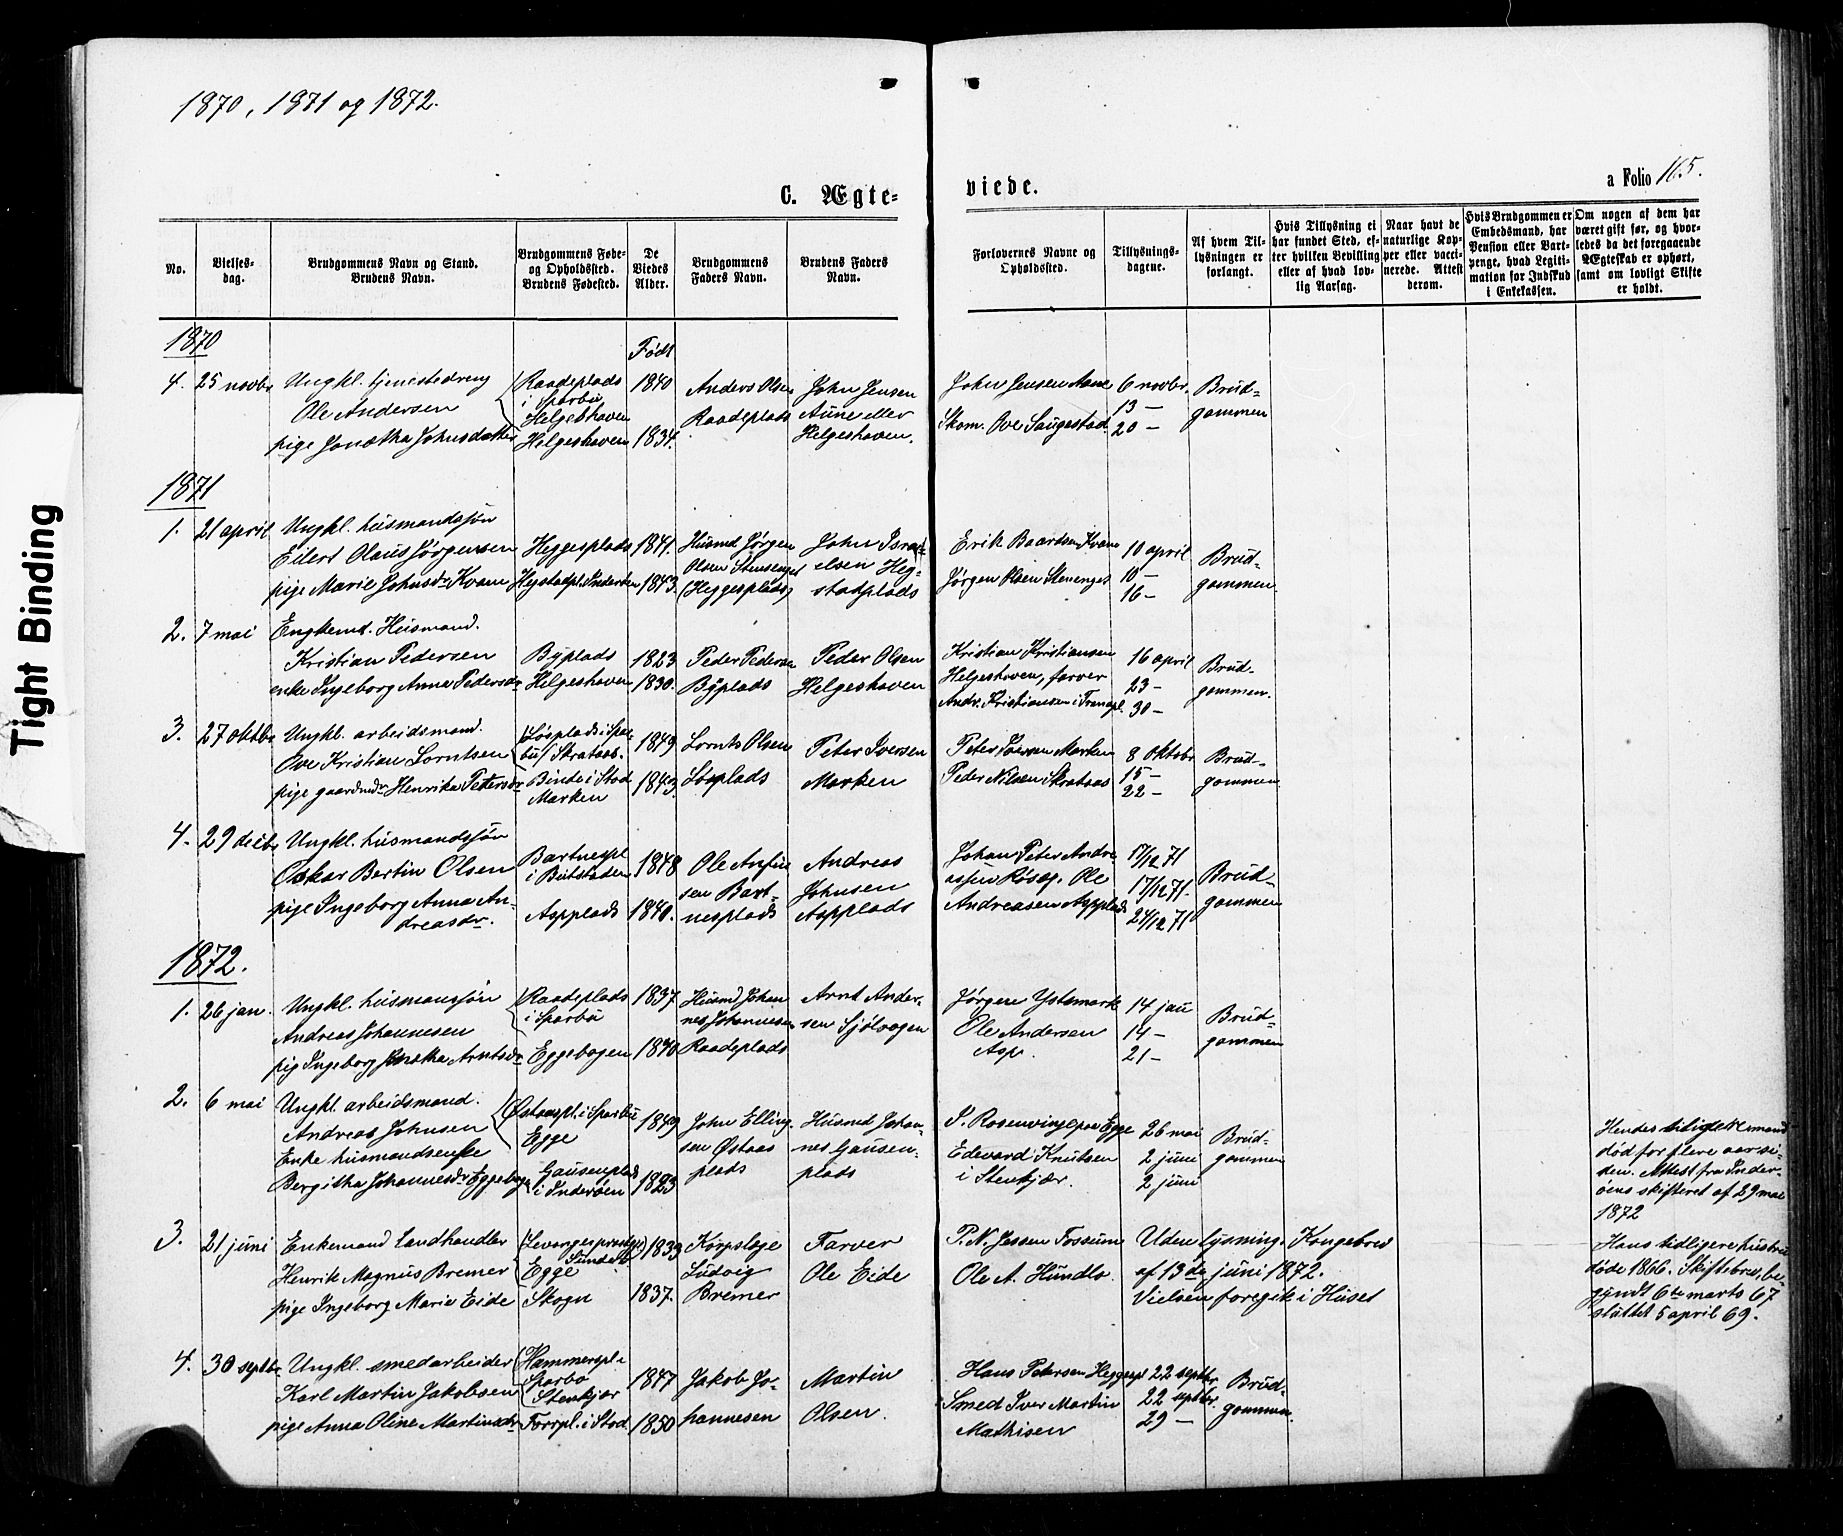 1870, 1871 og 1872.
C. Ægte-
viede.
a Folio 165.
No.
Vielses-
dag.
Brudgommens Navn og Stand.
Brudens Navn.
Brudgommens Føde-
og Opholdssted.
Brudens Fødested.
De
Viedes
Alder.
Brudgommens
Faders Navn.
Brudens Faders
Navn.
Forlovernes Navne og
Opholdssted.
Tillysnings-
dagene.
Af hvem Til-
lysningen er
forlangt.
Hvis Tillysning ei
har fundet Sted, ef-
ter hvilken Bevilling
eller af hvad lov-
lig Aarsag.
Naar havt de
naturlige Kop-
per eller vacci-
nerede. Attest
derom.
Hvis Brudgommen er
Embedsmand, har
Pension eller Vart-
penge, hvad Legiti-
mation for Indskud
i Enkekassen.
Om nogen af dem har
været gift før, og hvor-
ledes da det foregaaende
Ægteskab er ophørt,
samt om lovligt Skifte
er holdt.
1870
Født
4. 25 novbr
Ungkl. tjenestedreng
Ole Andersen
pige Jonætha Johnsdatter
Raadeplads
i Sparbu
Helgeshaven
Helgeshaven
1840
1834.
Anders Olsen
Raadeplads
John Jensen
Aune eller
Helgeshaven.
John Jensen Aune
Skom. Ove Saugestad.
6 novbr.
13 —
20 —
Brud-
gommen
1871
1. 21 april
Ungkl. husmandssøn
Eilert Olaus Jørgensen
pige Marie Johnsdr Kvam
Heggesplads
Hegstadpl. Inderøen
1841.
1843.
Husmd Jørgen
Olsen Stensenget
(Heggesplads)
John Isra-
elsen Heg-
stadplads
Erik Baardsen Kvam
Jørgen Olsen Stenenget
10 april
10 —
16 —
Brud-
gommen.
2. 7 mai
Engkemd. Husmand.
Kristian Pedersen
enke Ingeborg Anna Pedersdr
Byplads
Helgeshaven
1823
1830.
Peder Pedersen
Byplads
Peder Olsen
Helgeshaven
Kristian Kristiansen
Helgeshaven, farver
Andr. Kristiansen i Tranapl.
16 april
23 —
30 —
Brud-
gommen.
3. 27 oktbr
Ungkl. arbeidsmand.
Ove Kristian Lorntsen
pige gaardmdr Henrika Petersdr
Løsplads i Spar-
bu / Strataas.
Binde i Stod
Marken
1849
1843.
Lornts Olsen
Løsplads
Peter Iversen
Marken
Peter Iversen Marken
Peder Nilsen Skrataas
8 oktobr
15 —
22 —
Brud-
gommen.
4. 29 decbr
Ungkl. husmandssøn
Oskar Bertin Olsen
pige Ingeborg Anna An-
dreasdr.
Bartnespl
i Beitstaden
Aspplads
1848
1840.
Ole Anfin
sen Bart-
nesplads
Andreas
Johnsen
Aspplads
Johan Peter Andre
assen Røseg. Ole
Andreasen Aspplads
17/12 71
17/12 71.
24/12 71
Brud-
gommen
1872.
1. 26 jan.
Ungkl. husmanssøn
Andreas Johannesen
pig Ingeborg Jonetha Arntsdr
Raadeplads
i Sparbu
Eggebogen
1837
1840
Husmd Johan
nes Johannesen
Raadeplads
Arnt Ander-
sen Sjølvogen
Jørgen Ystsmark
Ole Andersen
Asp.
14 jan
14 —
21 —
Brud-
gommen
2. 6 mai
Ungkl. arbeidsmand.
Andreas Johnsen
Enke husmandsenke
Bergitha Johannesdr Eggebogen
Østaaspl. i Sparbu
Egge
Gausenplads
i Inderøen
1849
1823
John Elling
sen Østaas
plads
Husmd Johan-
nes Gausen-
plads
P. Rosenvinge paa Egge
Edevard Knutsen
i Stenkjær.
26 mai
2 juni
2 juni
Brud-
gommen
Hendes tidligere mand
død for flere aar si-
den. Attest fra Inder-
øens skifteret af 29 mai
1872
3. 21 juni
Enkemand Landhandler
Henrik Magnus Bremer
pige Ingeborg Marie Eide
Egge
Skogn
1833
1837.
Korpslæge
Ludvig
Bremer
Farver
Ole Eide
P. N. Jessen Fossum
Ole A. Hundlo.
Uden lysning. Kongebrev
af 13de juni 1872.
Vielsen foregik i Huset
Hans tidligere hustru
døde 1866. Skiftebrev be-
gyndt 6te marts 67
sluttet 5 april 69.
4. 30 septbr
Ungkl. smedarbeider
Karl Martin Jakobsen
pige Anna Oline Martinsdr
Hammerspl. i
Sparbu
Stenkjær
Forrpl. i Stod
1847
1850
Jakob Jo-
hannesen
Martin
Olsen.
Hans Petersen Heggespl
Smed Iver Martin
Mathisen
22 septbr.
22 septbr.
29 —
Brud-
gommen.
Tight Binding